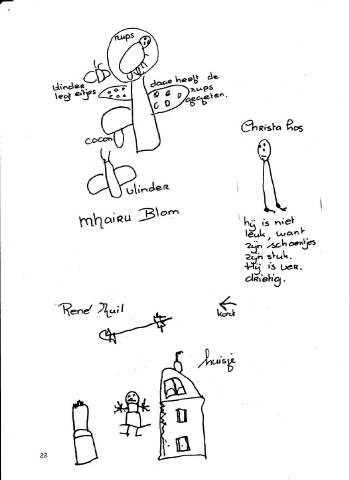 rups
vlinder
legt eitjes
daar heeft de
rups
gegeten.
cocon
vlinder
mhairu Blom
Christa Los
hij is niet
leuk, want
zijn schoentjes
zijn stuk.
Hij is ver.
drietig.
René
huisje
22